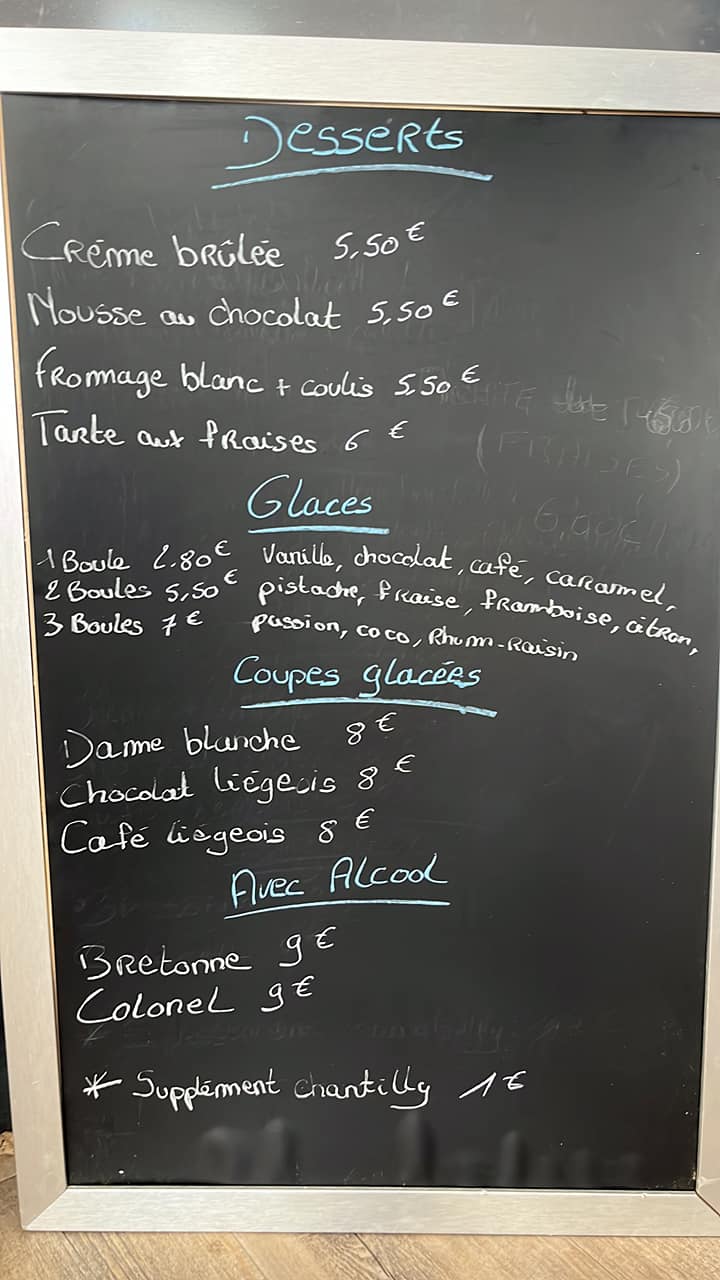 Desserts
Créme brûlée 5,50 €
Mousse au chocolat 5,50 €
fromage blanc + coulis 5,50 €
Tarte aux fraises 6 €
Glaces
1 Boule 2.80 € Vanille, chocolat, café, caramel,
2 Boules 5,50 € pistache, fraise, framboise, citron,
3 Boules 7 € passion, coco, Rhum-Raisin
Coupes glacées
Dame blanche 8 €
Chocolat liégeois 8 €
Café liégeois 8 €
Avec Alcool
Bretonne 9 €
Colonel 9 €
* Supplément chantilly 1 €